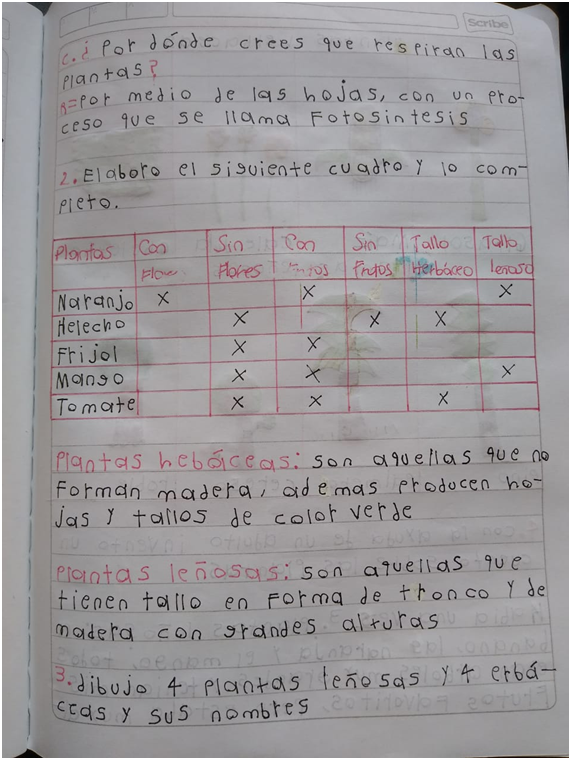 Scribe
c. ¿Por dónde crees que respiran las
plantas?
R= Por medio de las hojas, con un pro-
ceso que se llama Fotosintesis
2. Elaboro el siguiente cuadro y lo com-
pleto.
Plantas Con Flores Sin Flores Con Frutos Sin Frutos Tallo Herbáceo Tallo leñoso
Naranjo X X X
Helecho X X X
Frijol X X
Mango X X X
Tomate X X X
Plantas hebáceas: son aquellas que no
Forman madera, ademas producen ho-
jas y tallos de color verde
Plantas leñosas: son aquellas que
tienen tallo en Forma de tronco y de
madera con grandes alturas
3. dibujo 4 plantas leñosas y 4 erbá-
ceas y sus nombres